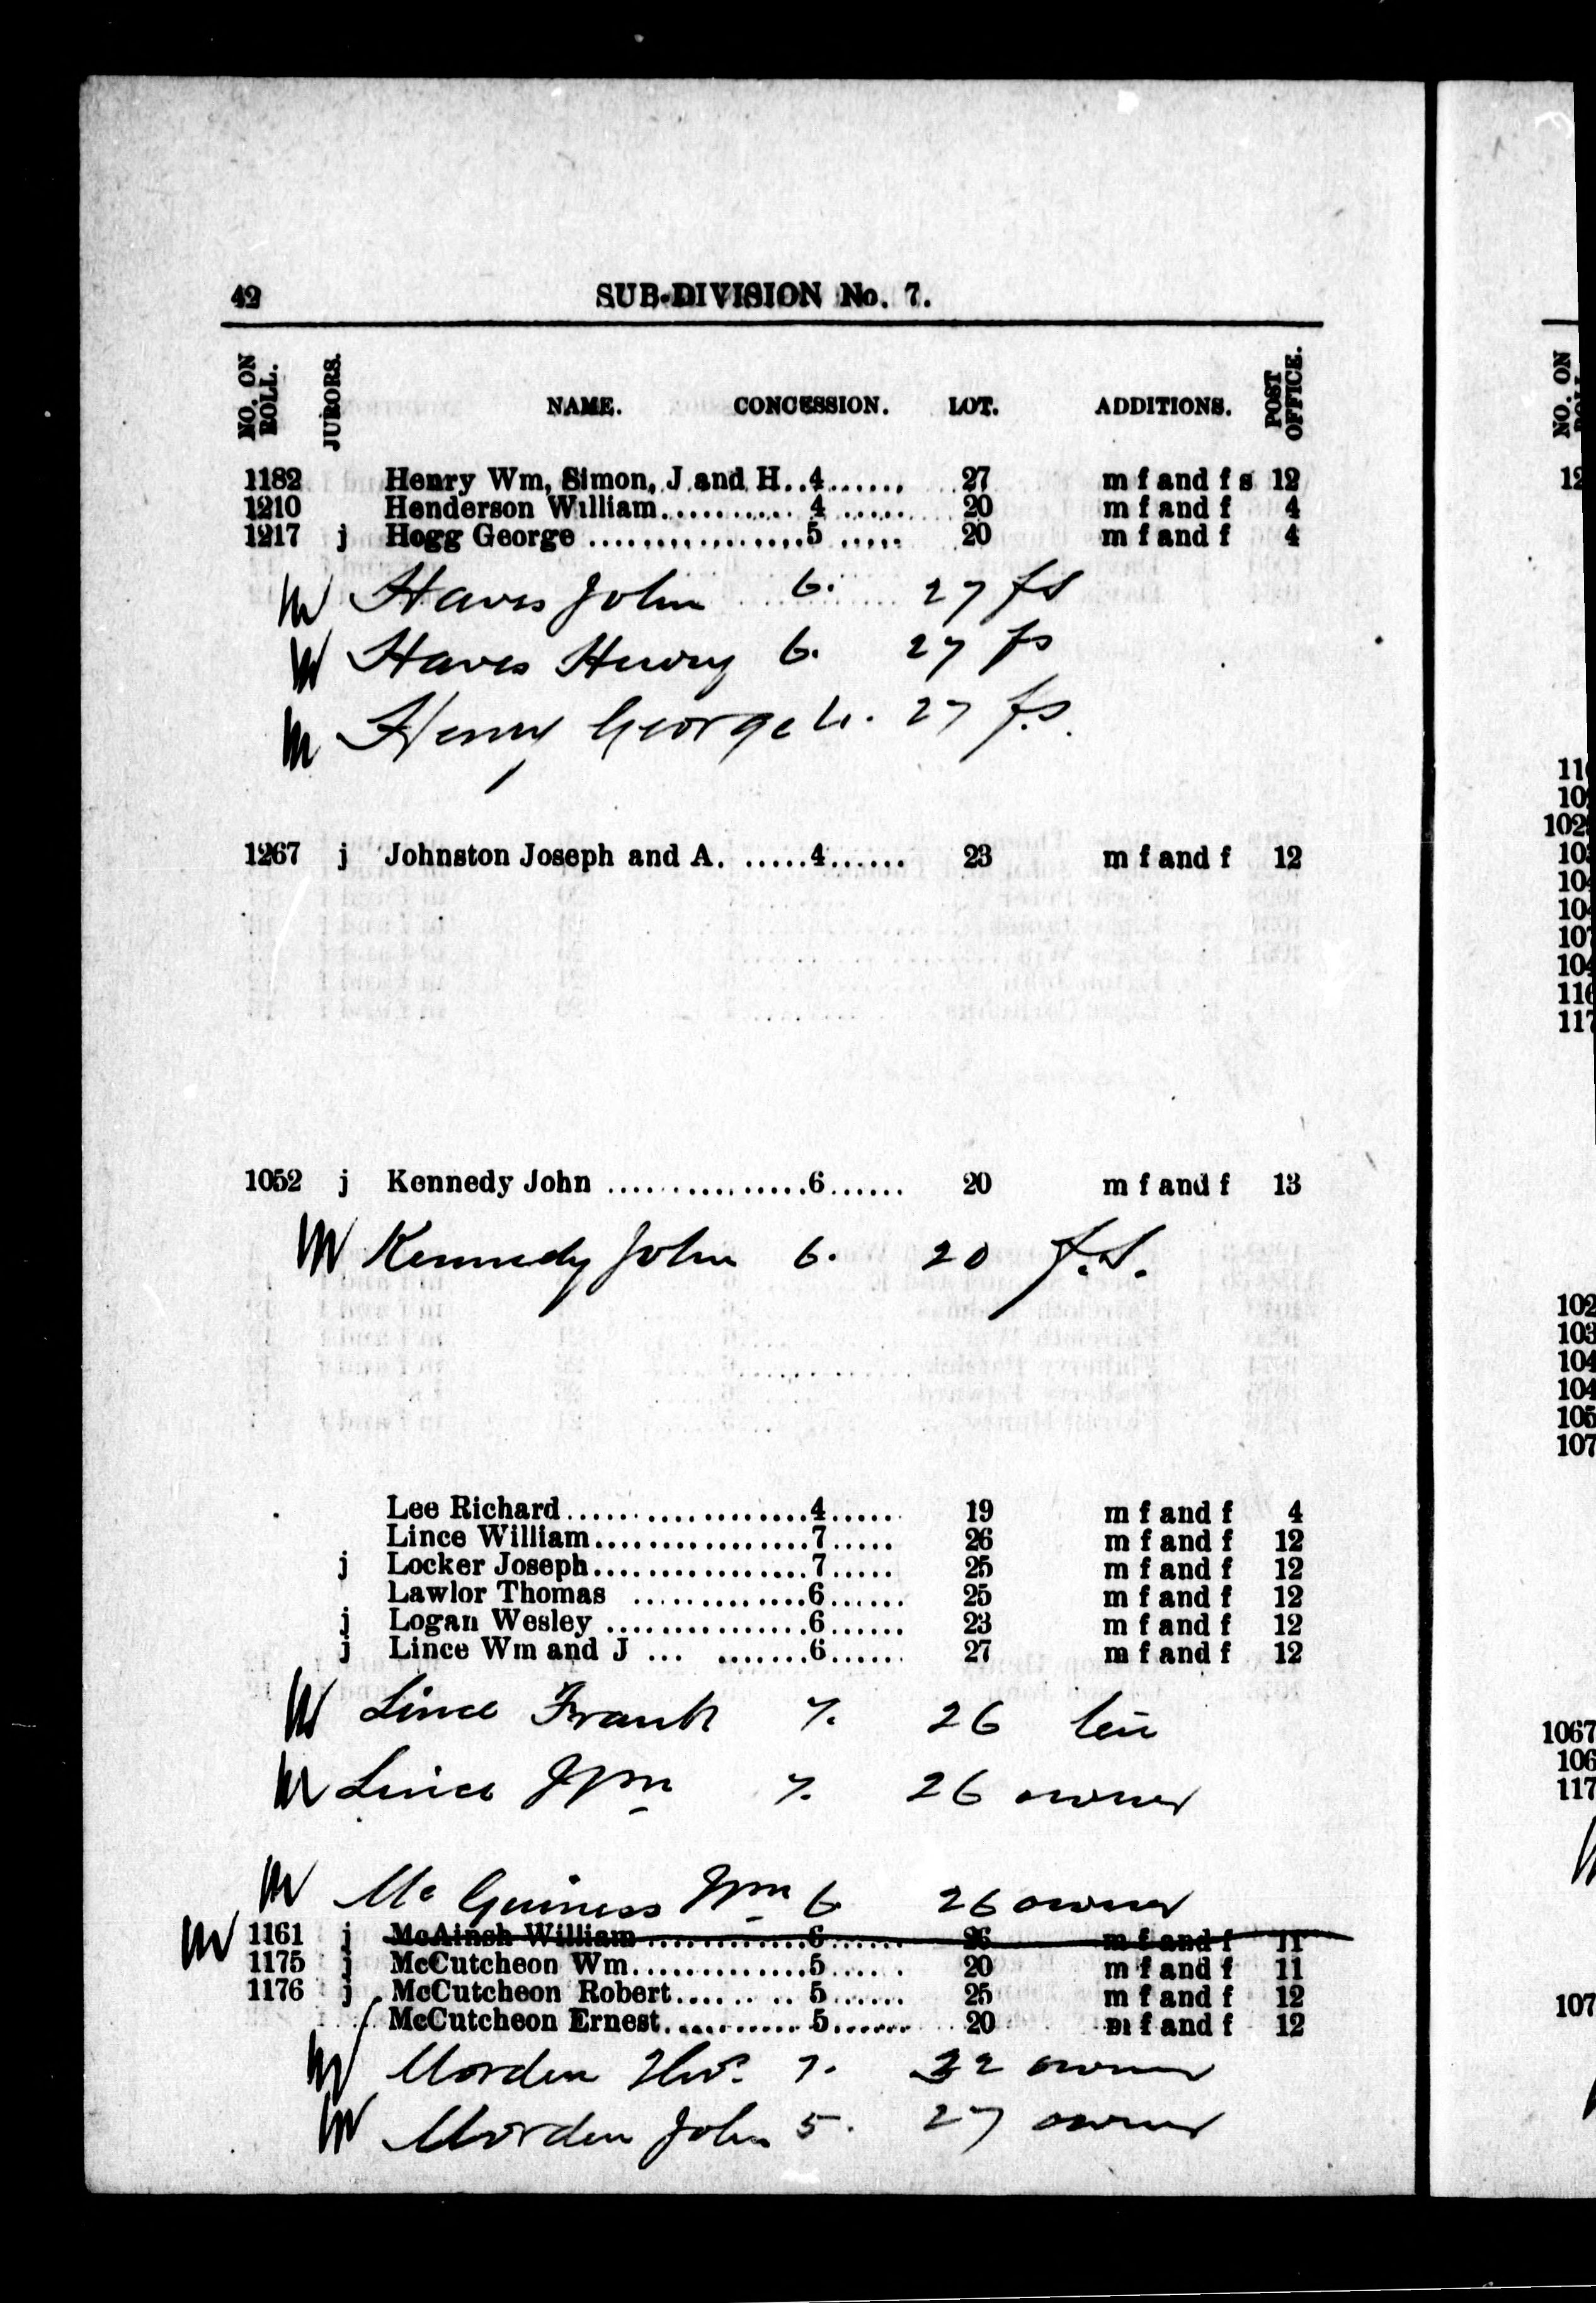 42 SUB-DIVISION No. 7.
NO. ON ROLL. JURORS. NAME. CONCESSION. LOT. ADDITIONS. POST OFFICE.
1182 Henry Wm, Simon, J and H..4...... 27 m f and f s 12
1210 Henderson William.......... 4 ...... 20 m f and f 4
1217 j Hogg George ................5 ..... 20 m f and f 4
Haves John 6. 27 fs
Haves Henry 6. 27 fs
Henry George 27 f.s.
1267 j Johnston Joseph and A. .....4...... 23 m f and f 12
1052 j Kennedy John ...............6...... 20 m f and f 13
Kennedy John 6. 20 f.s.
Lee Richard....................4...... 19 m f and f 4
Lince William................7..... 26 m f and f 12
j Locker Joseph................7..... 25 m f and f 12
Lawlor Thomas .............6...... 25 m f and f 12
j Logan Wesley ...............6...... 23 m f and f 12
j Lince Wm and J ... .......6...... 27 m f and f 12
Lince Frank 7. 26 ten
Lince Wm 7. 26 owner
Mc Guiness Wm 6 26 owner
1161 j McAinsh William.............6...... 26 m f and f 11
1175 j McCutcheon Wm.............5...... 20 m f and f 11
1176 j McCutcheon Robert......... 5...... 25 m f and f 12
McCutcheon Ernest...........5....... 20 m f and f 12
Morden Thos. 7. 22 owner
Morden John 5. 27 owner
NO. ON
12
11
10
102
10
10
10
10
10
116
117
102
103
104
104
105
107
1067
106
117
107